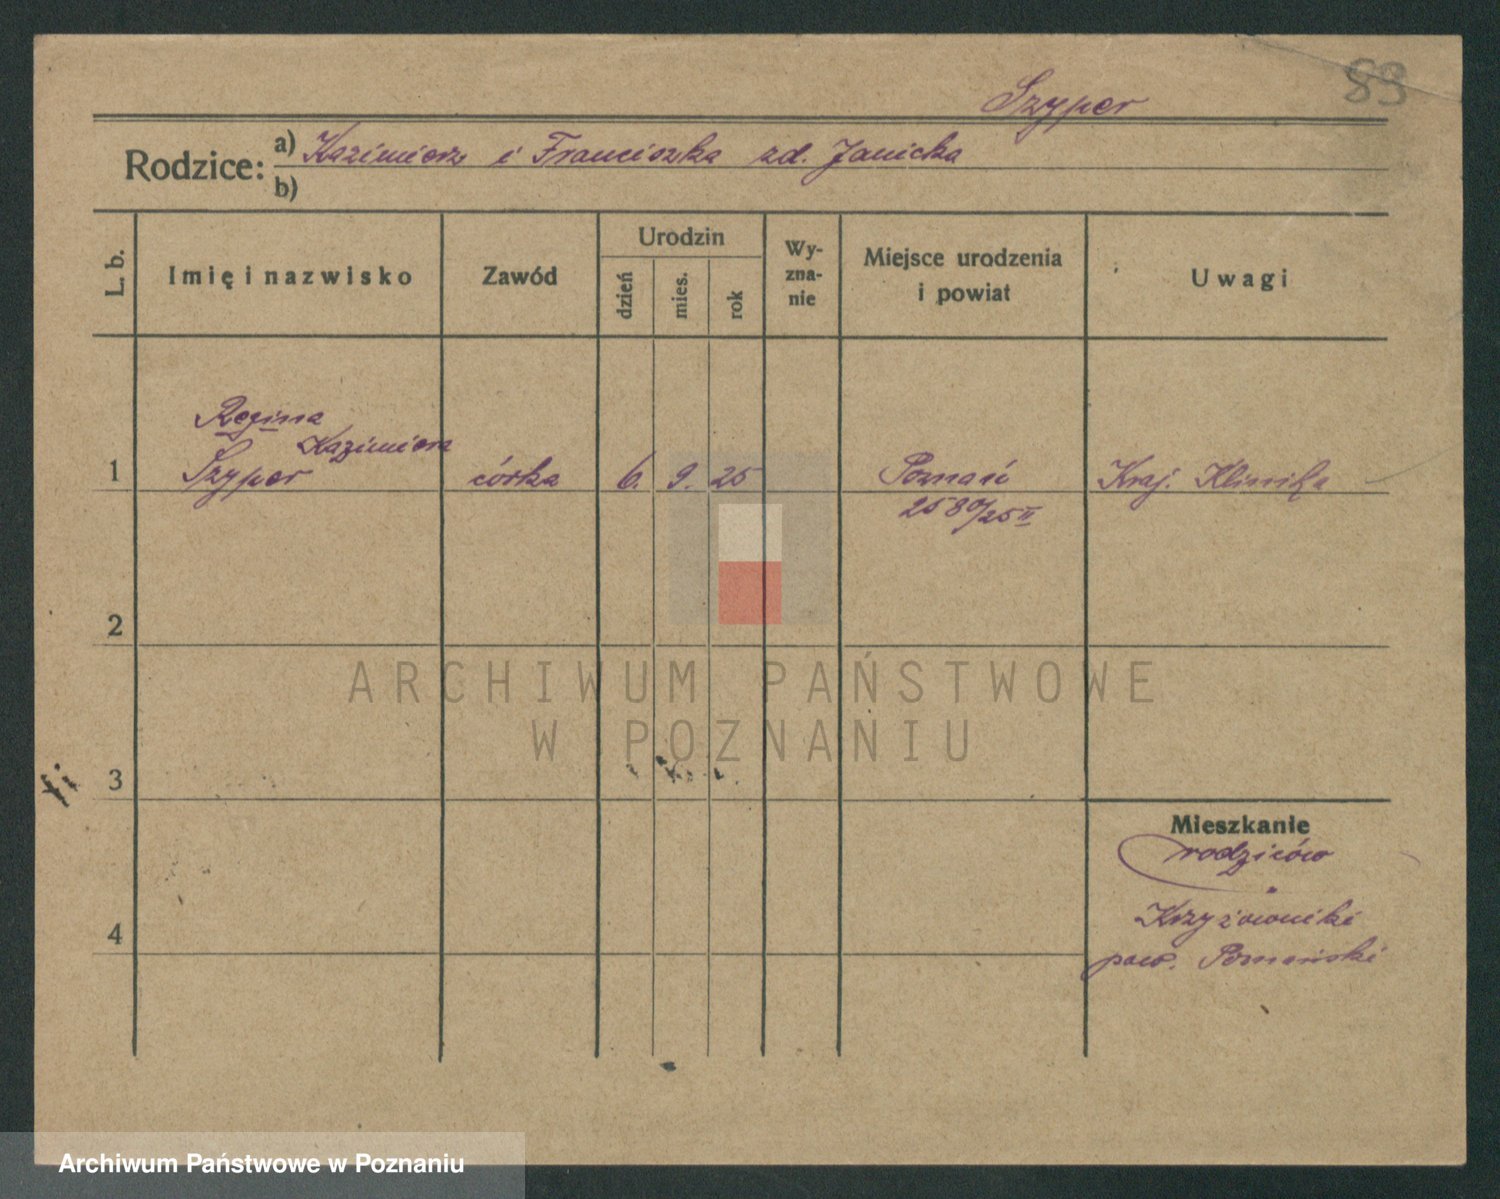 89
Szyper
Rodzice:
a) Kazimierz i Franciszka zd. Janicka
b)
L. b.
Imię i nazwisko
Zawód
Urodzin
dzień
mies.
rok
Wy-
zna-
nie
Miejsce urodzenia
i powiat
Uwagi
Regina
Kazimiera
1 Szyper córka 6. 9. 25 Poznań Kraj. Klinika
2580/25 II
2
ARCHIWUM PAŃSTWOWE
W POZNANIU
3
Mieszkanie
rodziców
4
Krzyżowniki
pow. Poznański
Archiwum Państwowe w Poznaniu